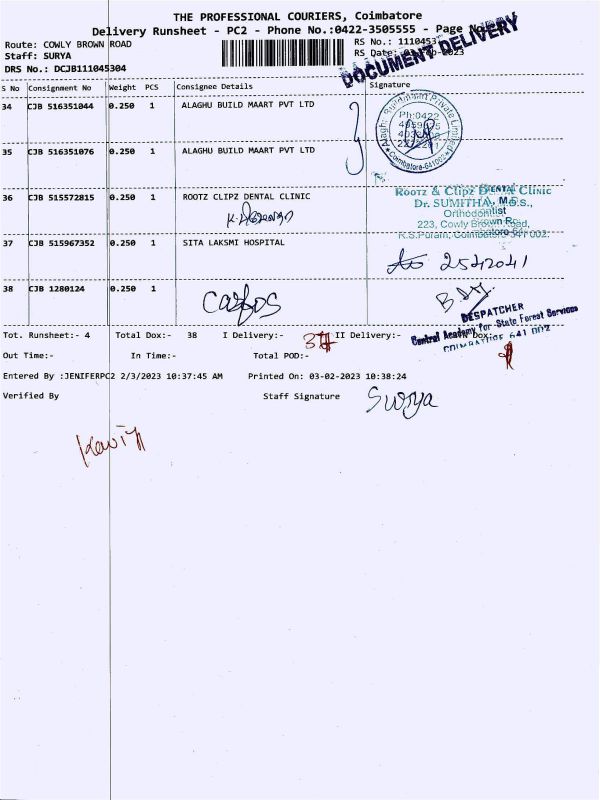 THE PROFESSIONAL COURIERS, Coimbatore
Delivery Runsheet - PC2 - Phone No.:0422-3505555 - Page
DOCUMENT DELIVERY
Route: COWLY BROWN ROAD
RS No.: 1110453
Staff: SURYA
RS Date: 03-Feb-2023
DRS No.: DCJB111045304
S No Consignment No Weight PCS Consignee Details Signature
34 CJB 516351044 0.250 1 ALAGHU BUILD MAART PVT LTD
Ph:0422
Coimbatore-641002
35 CJB 516351076 0.250 1 ALAGHU BUILD MAART PVT LTD
36 CJB 515572815 0.250 1 ROOTZ CLIPZ DENTAL CLINIC
Rootz & Clipz Dental Clinic
Dr. SUMITHA, M.D.S.,
Orthodontist
223, Cowly Brown Road,
R.S.Puram, Coimbatore-641 002.
37 CJB 515967352 0.250 1 SITA LAKSMI HOSPITAL
2542041
38 CJB 1280124 0.250 1
DESPATCHER
Central Academy for State Forest Services
COIMBATORE 641 002
Tot. Runsheet:- 4 Total Dox:- 38 I Delivery:- 37 II Delivery:- N Dox:
Out Time:- In Time:- Total POD:-
Entered By :JENIFERPC2 2/3/2023 10:37:45 AM Printed On: 03-02-2023 10:38:24
Verified By Staff Signature Surya